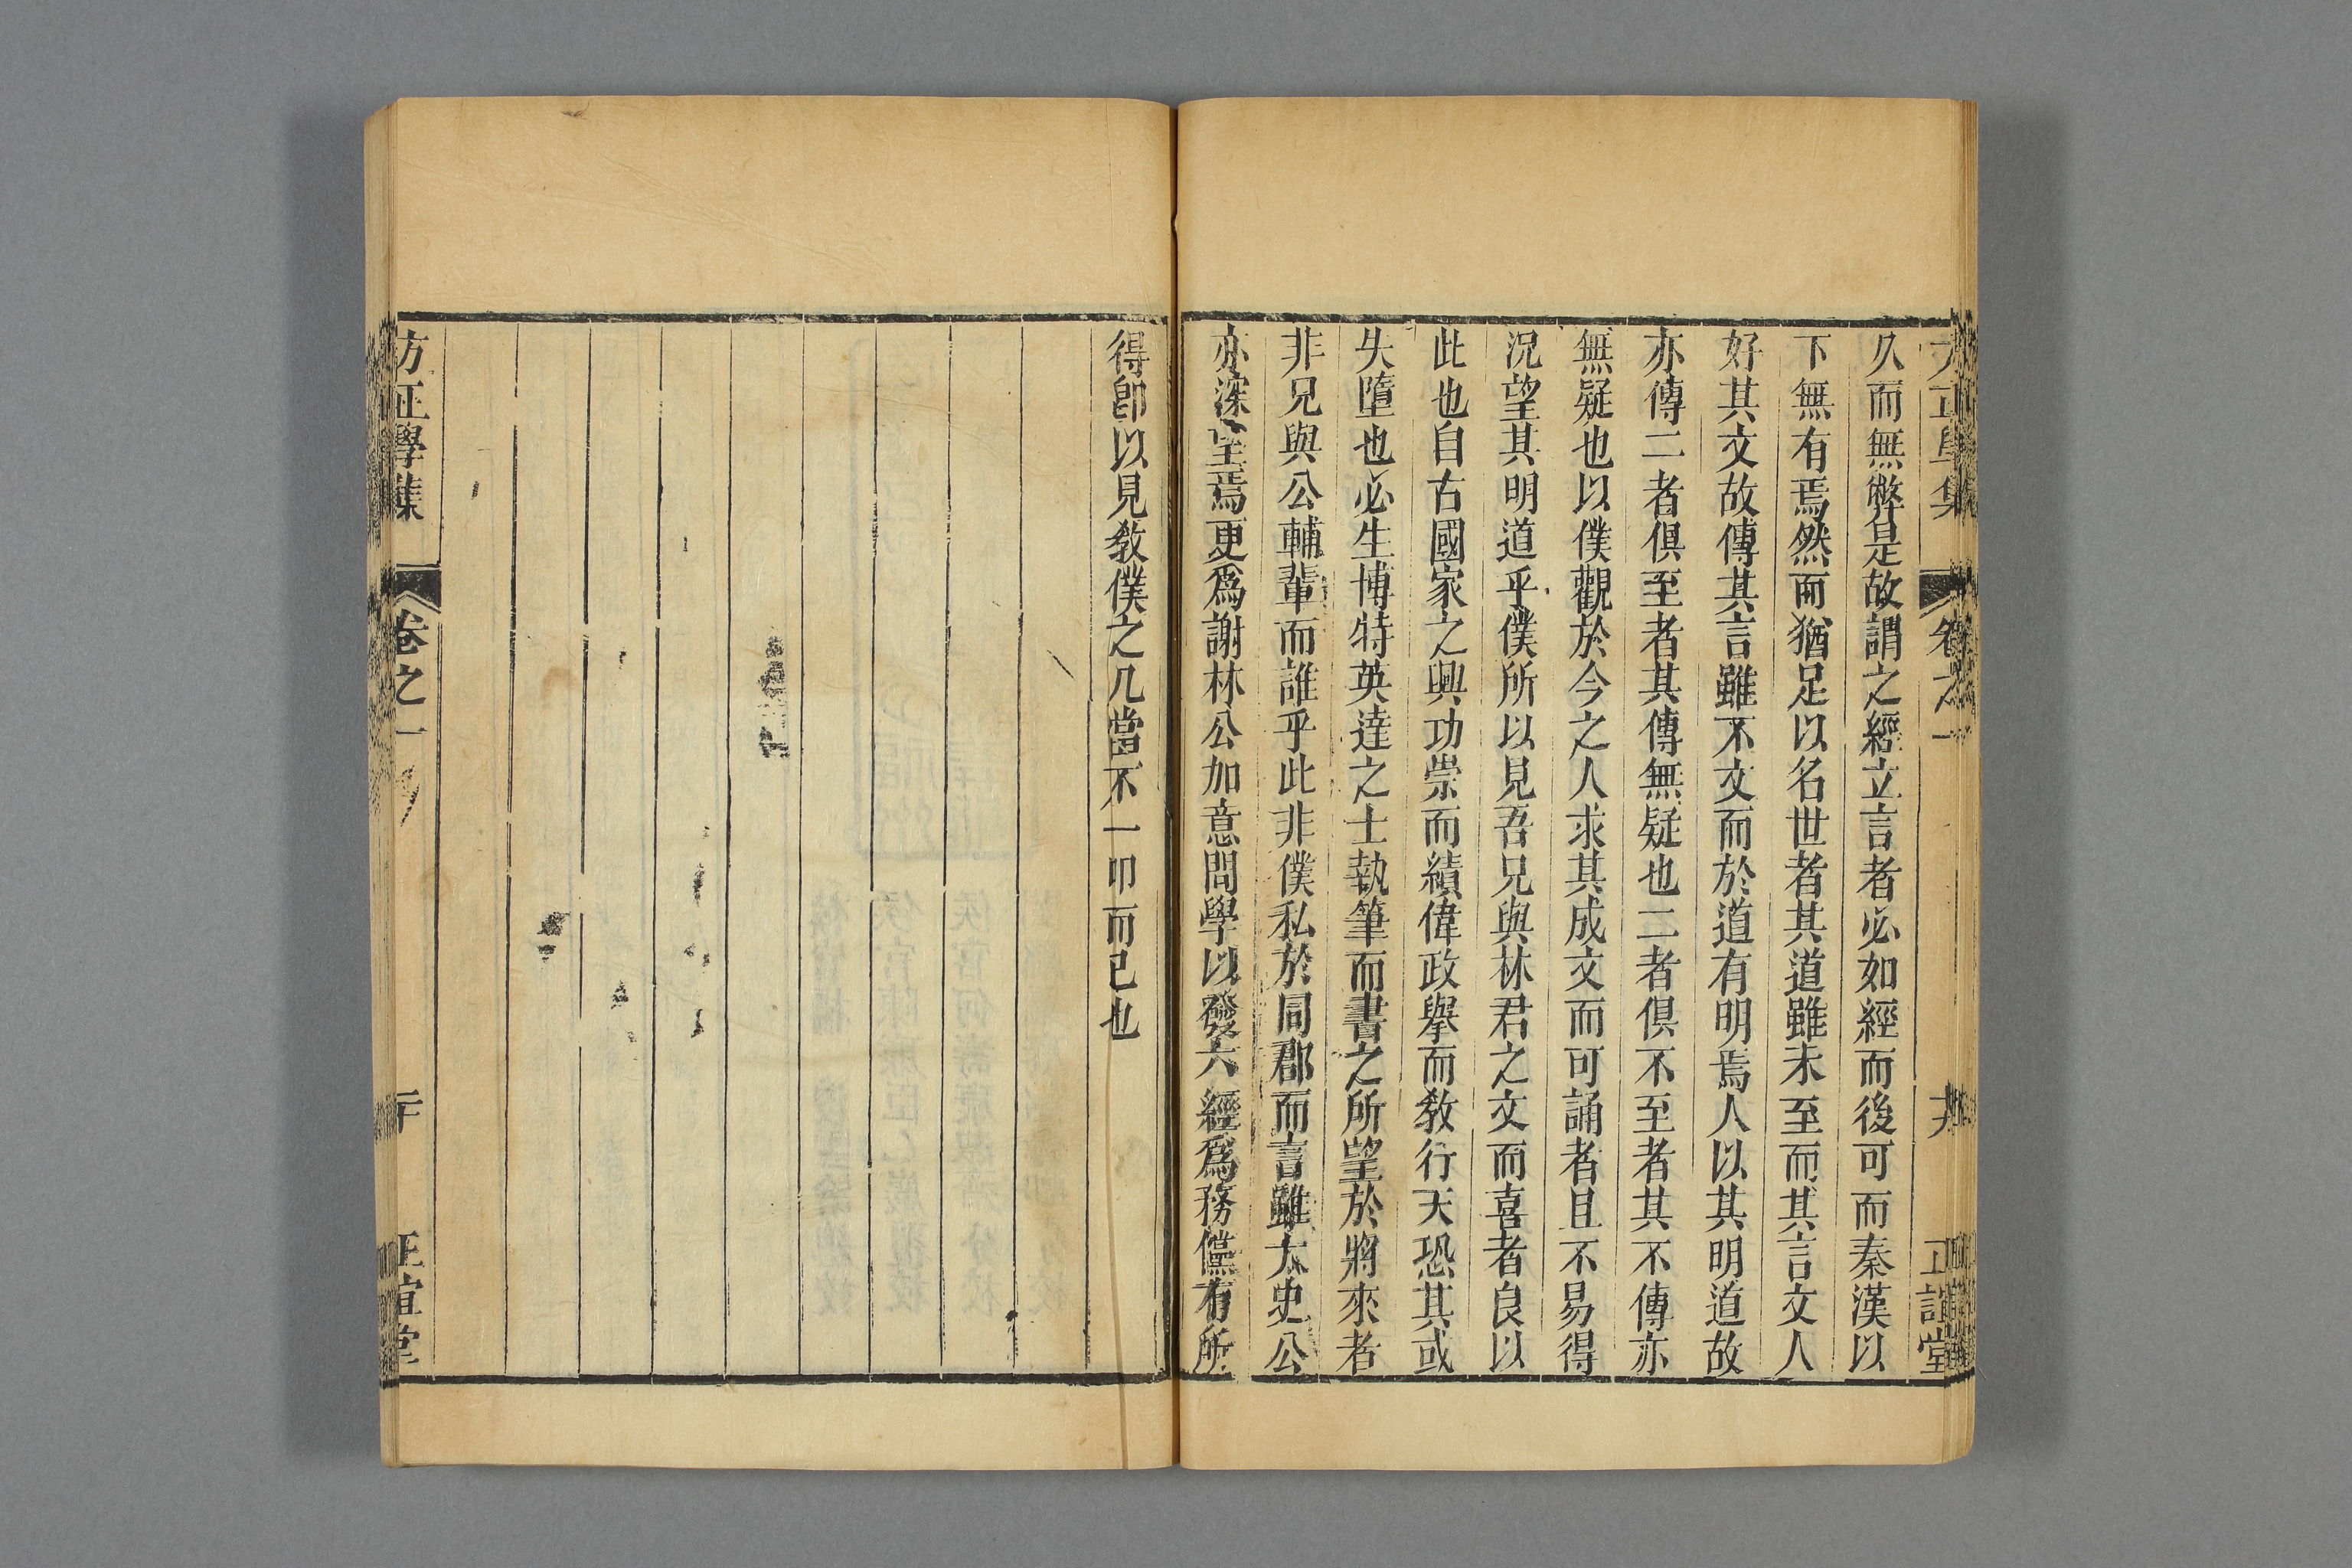 方正學集 卷之一 十九 正誼堂
久而無弊是故謂之經立言者必如經而後可而秦漢以
下無有焉然而猶足以名世者其道雖未至而其言文人
好其文故傳其言雖不文而於道有明焉人以其明道故
亦傳二者俱至者其傳無疑也二者俱不至者其不傳亦
無疑也以僕觀於今之人求其成文而可誦者且不易得
況望其明道乎僕所以見吾兄與林君之文而喜者良以
此也自古國家之興功崇而績偉政舉而敎行天恐其或
失墮也必生博特英達之士執筆而書之所望於將來者
非兄與公輔輩而誰乎此非僕私於同郡而言雖太史公
亦深望焉更爲謝林公加意問學以發六經爲務儻有所
得卽以見敎僕之几當不一叩而已也
方正學集 卷之一 二十 正誼堂